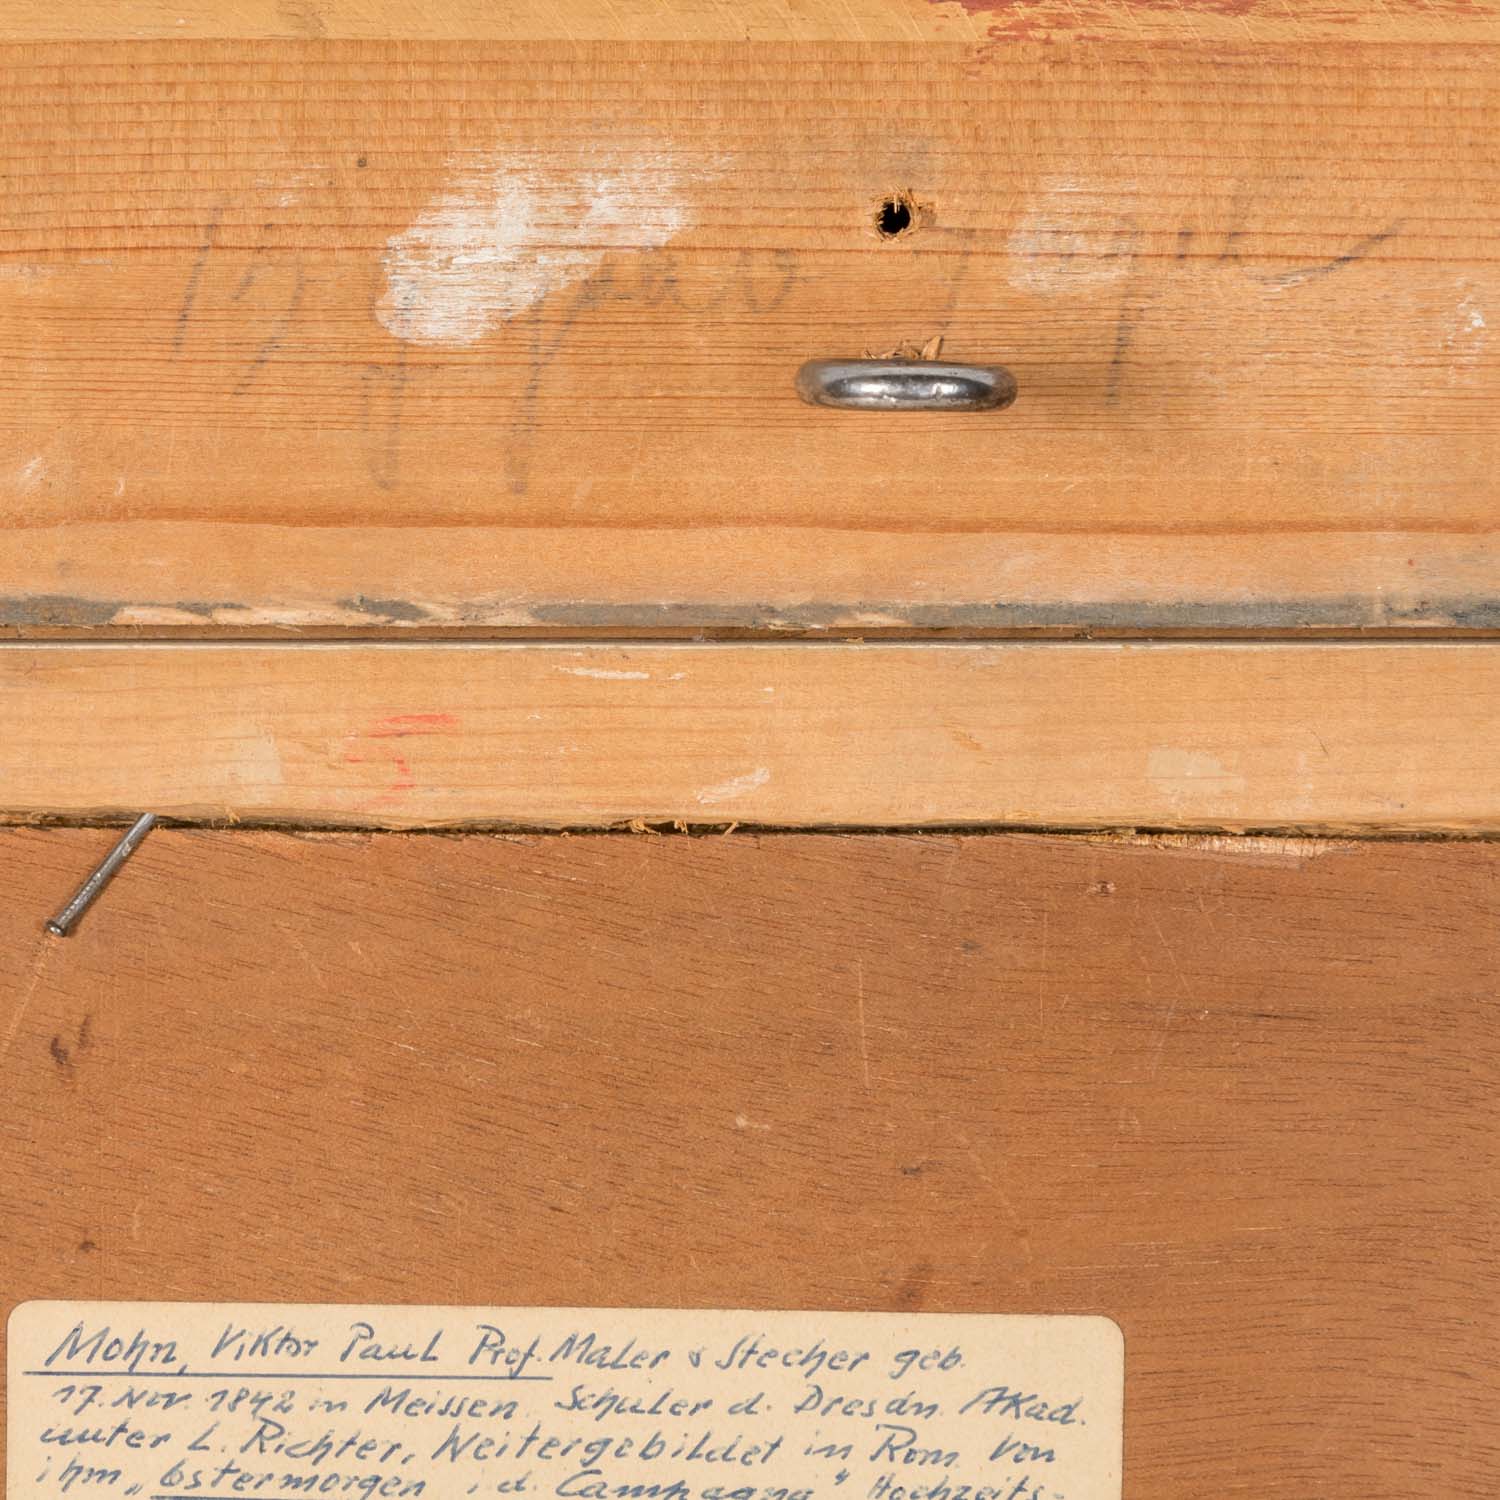 5
Mohn, Viktor Paul Prof. Maler & Stecher geb.
17. Nov. 1842 in Meissen. Schuler d. Dresdn. Akad.
unter L. Richter, Weitergebildet in Rom. Von
ihm „Ostermorgen i. d. Campagna" Hochzeits-